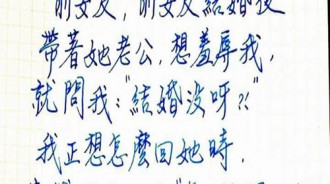 前女友，前女友結婚後
帶著她老公，想羞辱我，
就問我："結婚沒呀？"
我正想怎麼回她時，